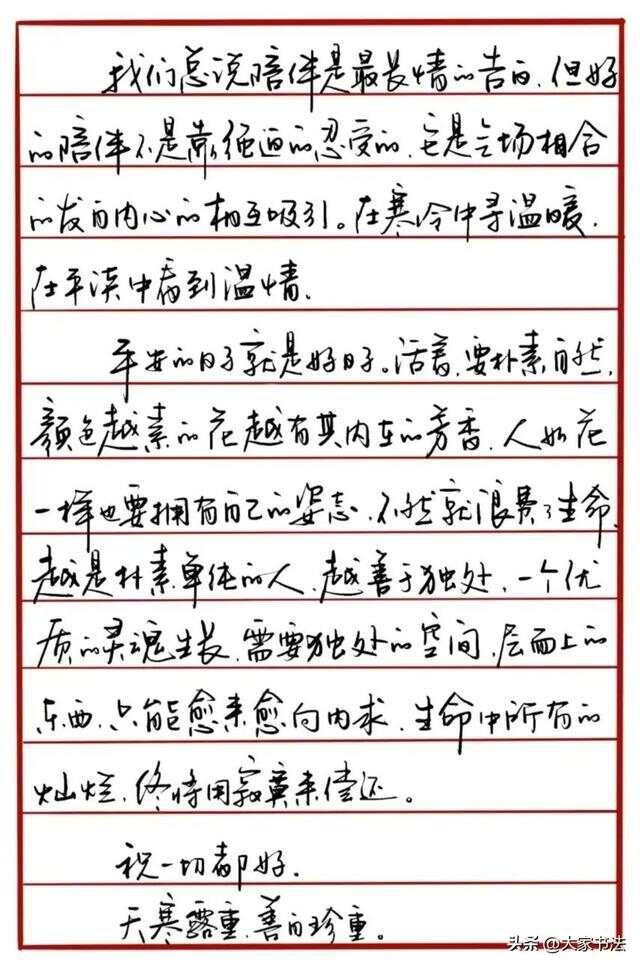 我们总说陪伴是最长情的告白，但好
的陪伴不是靠强迫的忍受的，它是气场相合
的发自内心的相互吸引。在寒冷中寻温暖，
在平淡中看到温情。
平安的日子就是好日子。活着，要朴素自然，
颜色越素的花越有其内在的芳香，人如花
一样也要拥有自己的姿态，不然就浪费了生命，
越是朴素单纯的人，越善于独处，一个优
质的灵魂生长，需要独处的空间，层面上的
东西，只能愈来愈向内求，生命中所有的
灿烂，终将用寂寞来偿还。
祝一切都好。
天寒露重，善自珍重。
头条@大家书法